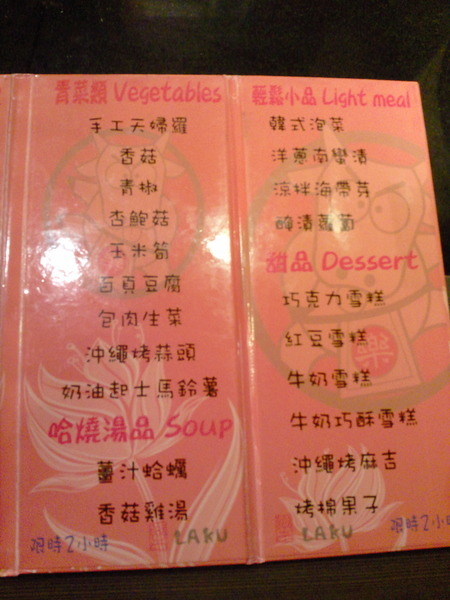 青菜類 Vegetables
手工天婦羅
香菇
青椒
杏鮑菇
玉米筍
百頁豆腐
包肉生菜
沖繩烤蒜頭
奶油起士馬鈴薯
哈燒湯品 Soup
薑汁蛤蠣
香菇雞湯
限時2小時
LAKU
輕鬆小品 Light meal
韓式泡菜
洋蔥南蠻漬
涼拌海帶芽
醃漬蘿蔔
甜品 Dessert
巧克力雪糕
紅豆雪糕
牛奶雪糕
牛奶巧酥雪糕
沖繩烤麻吉
烤棉果子
樂
LAKU
限時2小